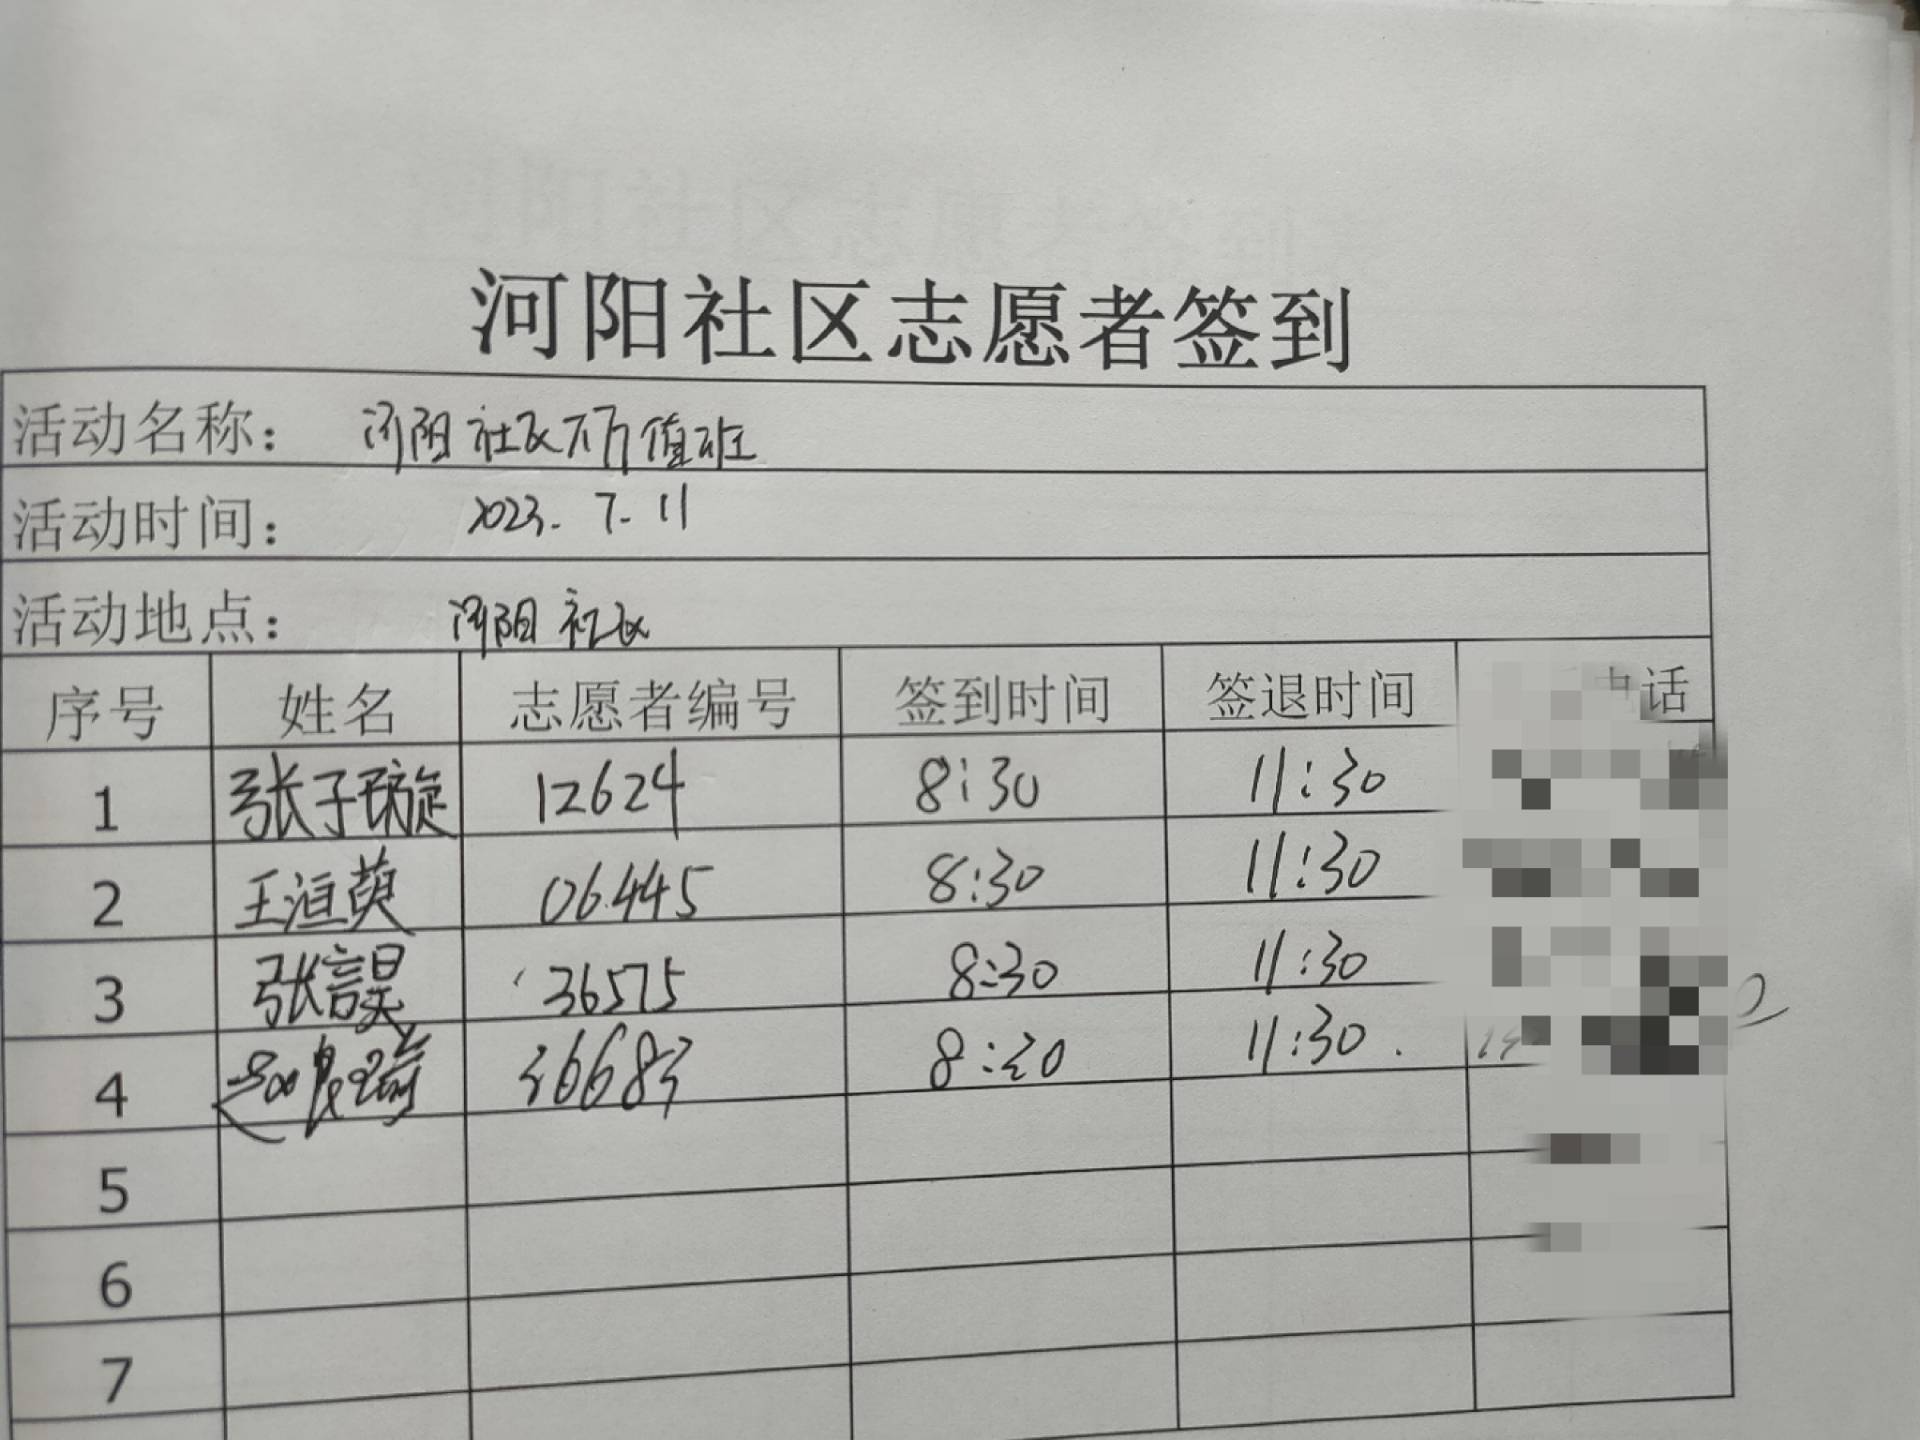 河阳社区志愿者签到
活动名称： 河阳社区大厅值班
活动时间： 2023.7.11
活动地点： 河阳社区
序号 姓名 志愿者编号 签到时间 签退时间 电话
1 张子璇 12624 8:30 11:30
2 王洹萸 06445 8:30 11:30
3 张謴 36575 8:30 11:30
4 36683 8:30 11:30
5
6
7